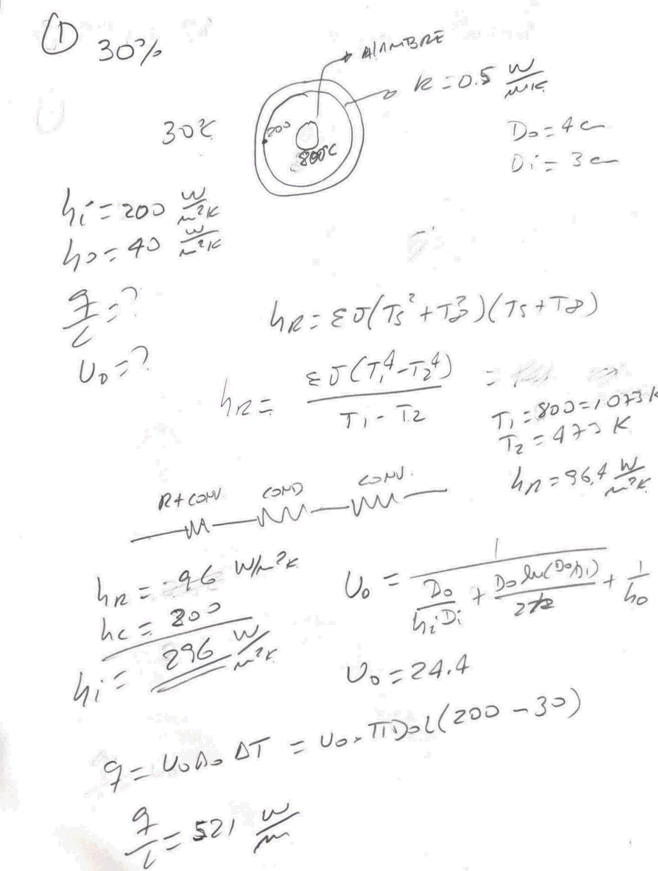 ① 30%
ALAMBRE
k = 0.5 W/mK
30°C
200
800°C
Do = 4 c
Di = 3 c
hi = 200 W/m²K
ho = 40 W/m²K
q/L = ?
Uo = ?
hR = εσ(Ts² + T∞²)(Ts + T∞)
hR = εσ(T1⁴ - T2⁴) / T1 - T2 =
T1 = 800 = 1073 K
T2 = 473 K
hR = 96.4 W/m²K
R + CONV COND CONV.
hR = 96 W/m²K
hc = 200
hi = 296 W/m²K
Uo = 1 / Do/hiDi + Do ln(Do/Di)/2k + 1/ho
Uo = 24.4
q = UoAo ΔT = Uo · π Do L (200 - 30)
q/L = 521 W/m